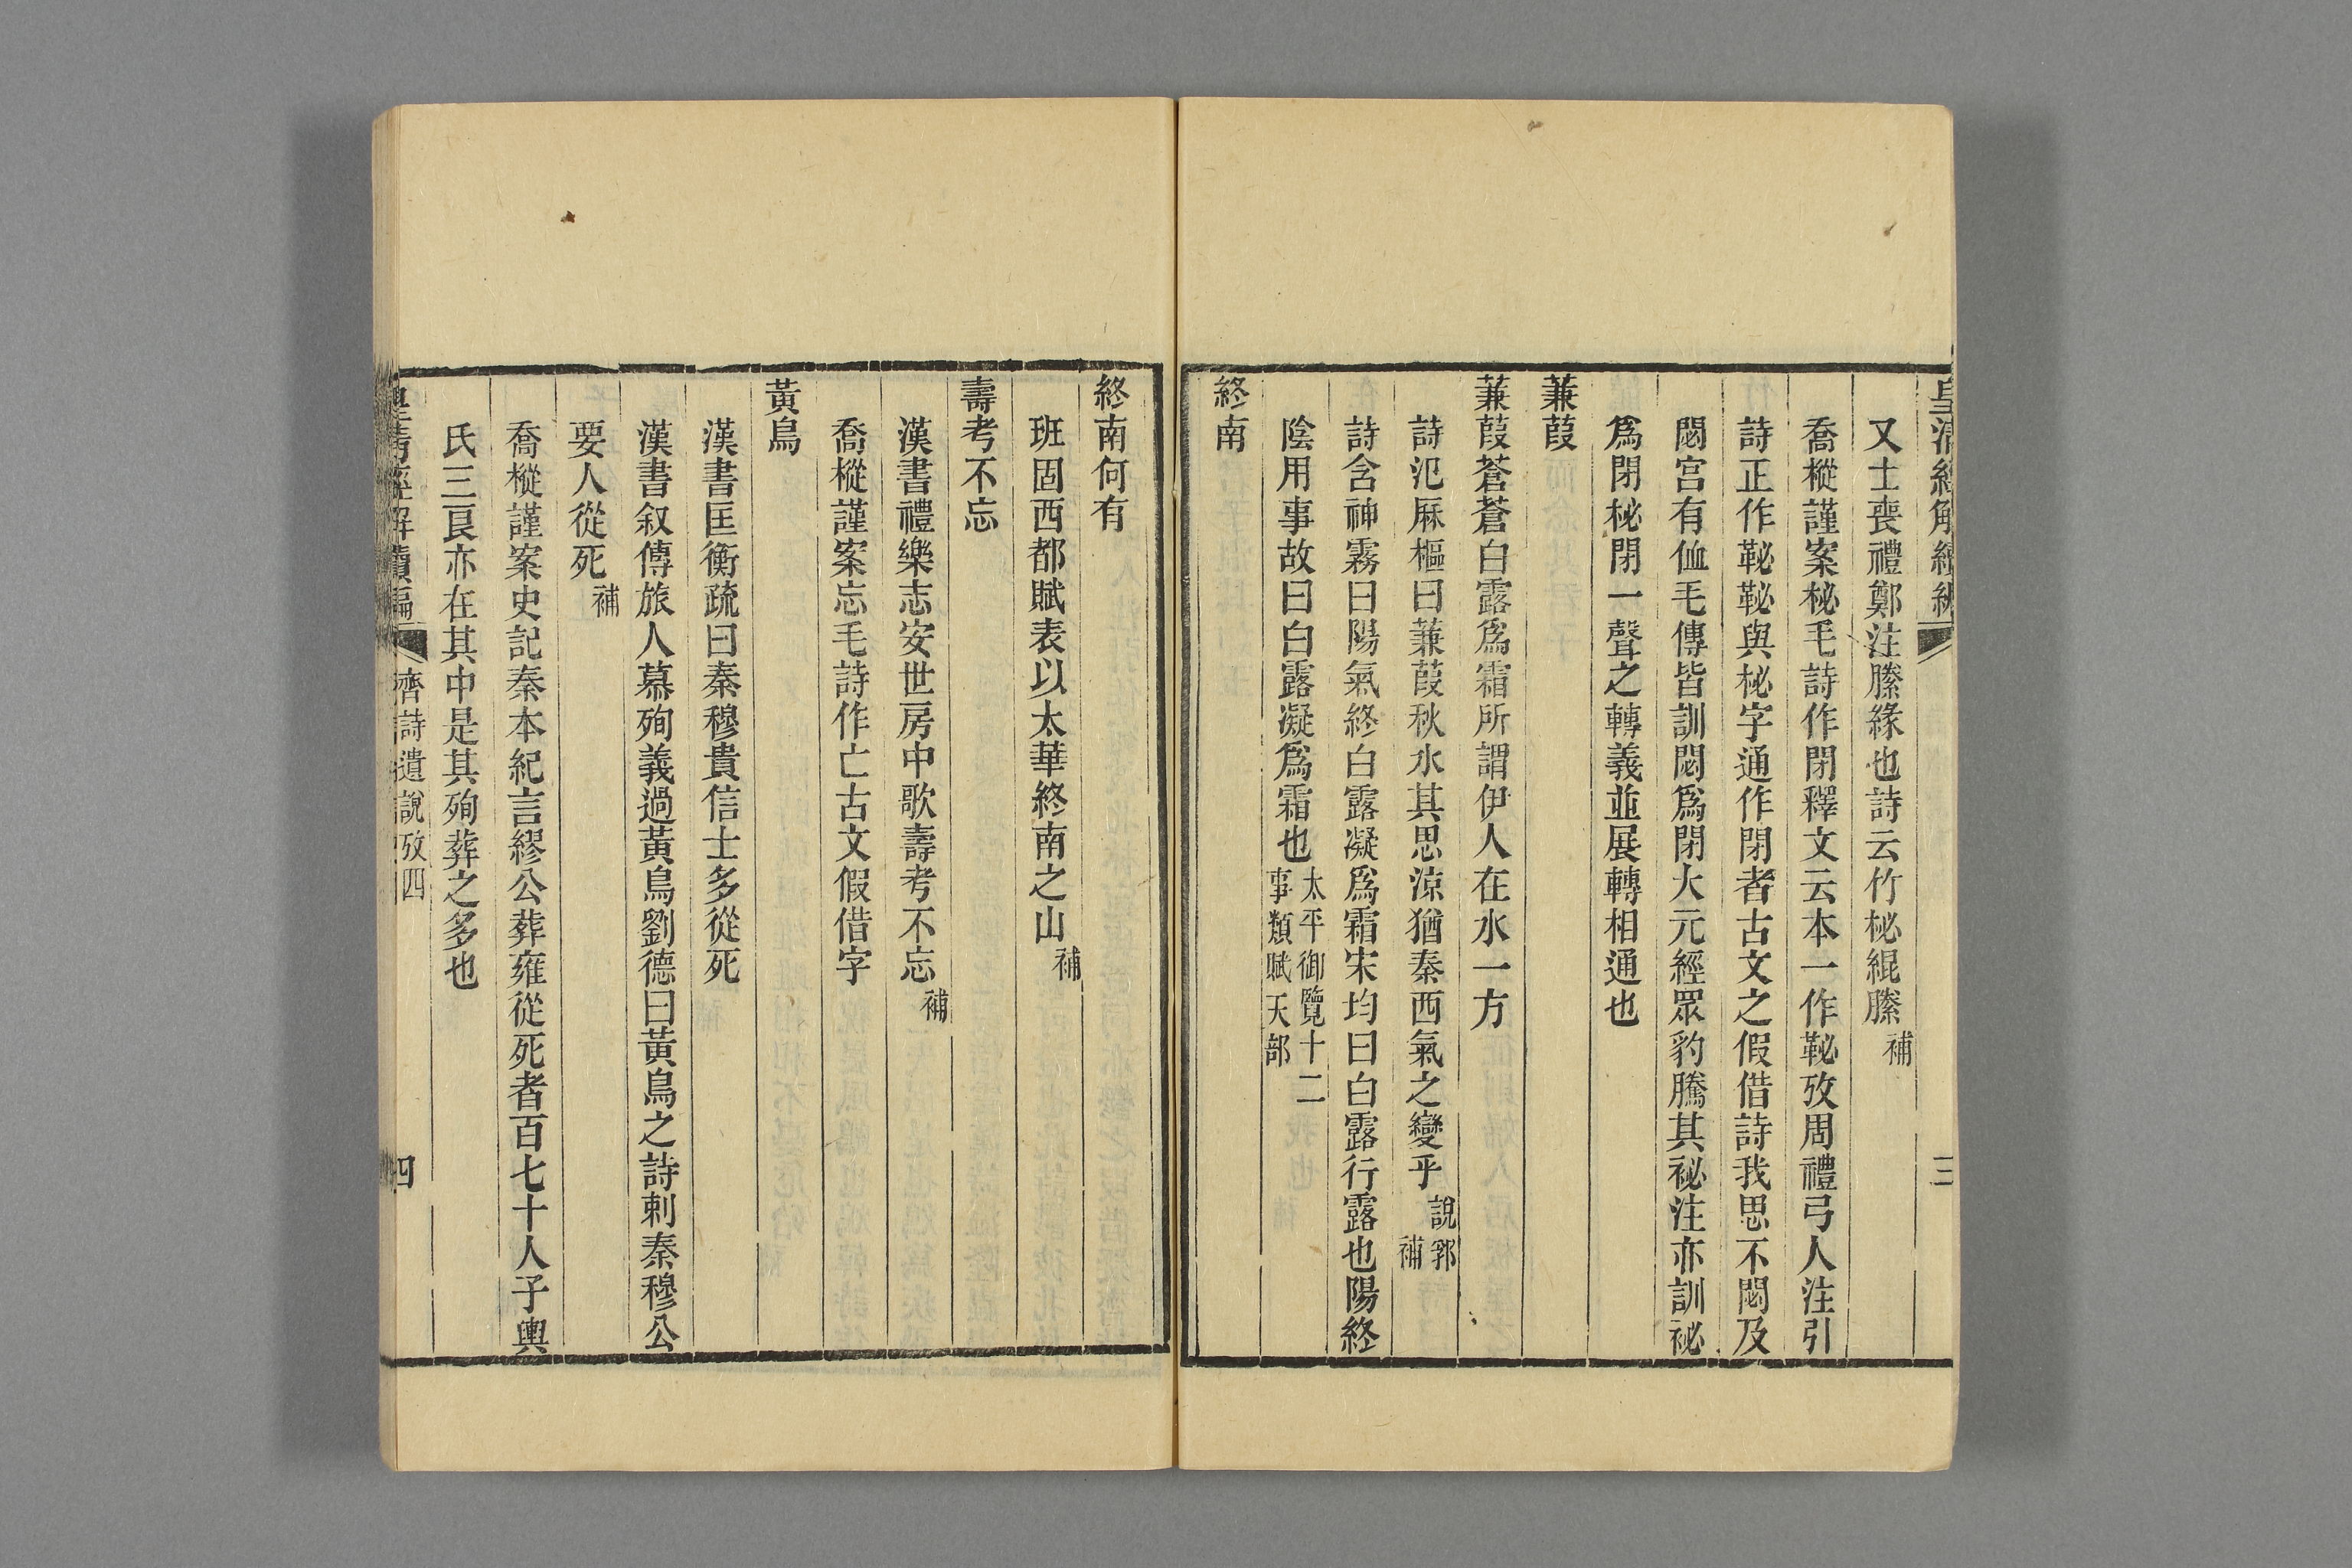 皇清經解續編
三
又士喪禮鄭注縢緣也詩云竹柲緄縢補
喬樅謹案柲毛詩作閉釋文云本一作䩛攷周禮弓人注引
詩正作䩛䩛與柲字通作閉者古文之假借詩我思不閟及
閟宫有侐毛傳皆訓閟爲閉大元經眾豹騰其祕注亦訓祕
爲閉柲閉一聲之轉義並展轉相通也
蒹葭
蒹葭蒼蒼白露爲霜所謂伊人在水一方
詩氾厤樞曰蒹葭秋水其思涼猶秦西氣之變乎說郛補
詩含神霧曰陽氣終白露凝爲霜宋均曰白露行露也陽終
陰用事故曰白露凝爲霜也太平御覽十二事類賦天部
終南
終南何有
班固西都賦表以太華終南之山補
壽考不忘
漢書禮樂志安世房中歌壽考不忘補
喬樅謹案忘毛詩作亡古文假借字
黃鳥
漢書匡衡疏曰秦穆貴信士多從死
漢書叙傳旅人慕殉義過黃鳥劉德曰黃鳥之詩刺秦穆公
要人從死補
喬樅謹案史記秦本紀言繆公葬雍從死者百七十人子輿
氏三良亦在其中是其殉葬之多也
皇清經解續編
齊詩遺說攷四
四